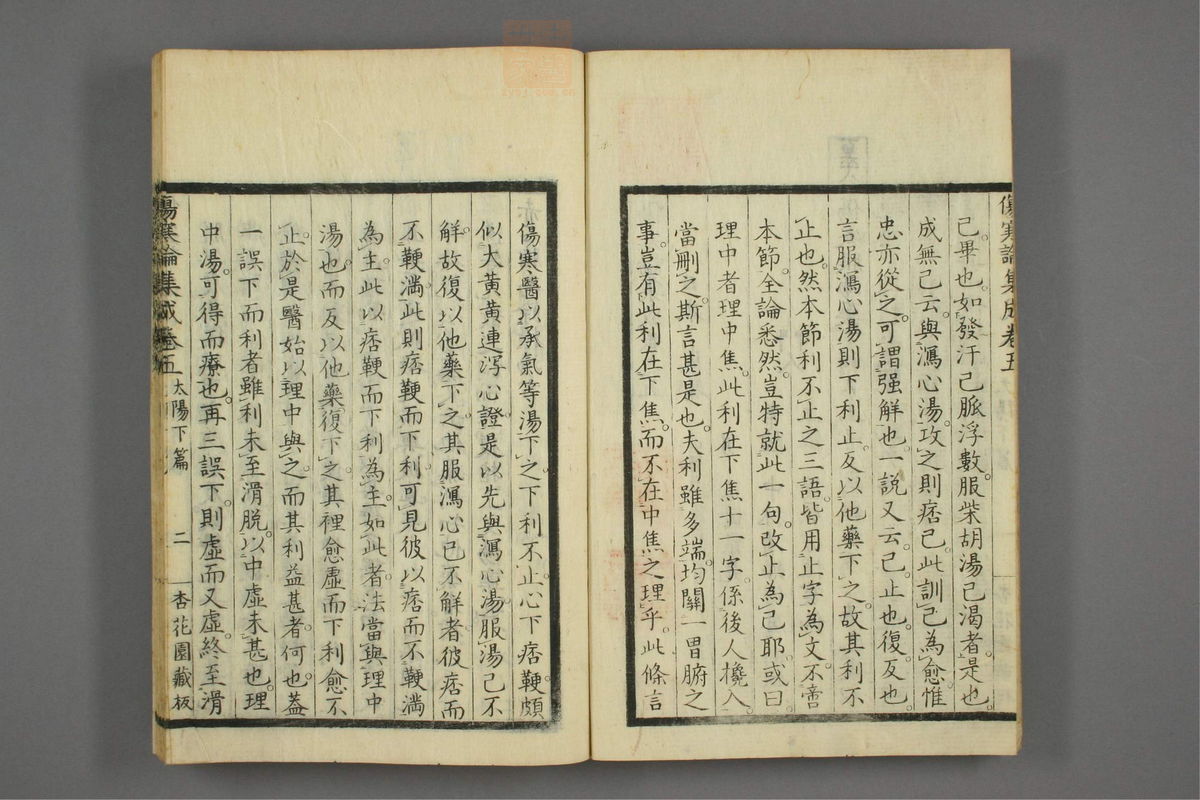 傷寒論集成卷五
己畢也。如發汗己脈浮數。服柴胡湯己渴者。是也
成無己云。與瀉心湯。攻之則痞己。此訓己為愈。惟
忠亦從之。可謂强解也。一説又云。己。止也。復。反也
言服瀉心湯則下利止。反以他藥下之。故其利不
止也。然本節利不止之三語。皆用止字為文。不啻
本節。全論悉然。豈特就此一句。改止為己耶。或曰
理中者理中焦。此利在下焦十一字。係後人攙入。
當刪之。斯言甚是也。夫利雖多端。均關一胃腑之
事。豈有此利在下焦。而不在中焦之理乎。此條言
傷寒醫以承氣等湯下之。下利不止。心下痞鞕。頗
似大黃黃連瀉心證。是以先與瀉心湯。服湯己不
解。故復以他藥下之。其服瀉心己不解者。彼痞而
不鞕滿。此則痞鞕而下利。可見彼以痞而不鞕滿
為主。此以痞鞕而下利為主。如此者。法當與理中
湯也。而反以他藥復下之。其裡愈虛而下利愈不
止。於是醫始以理中與之。而其利益甚者。何也。蓋
一誤下而利者。雖利未至滑脱。以中虛未甚也。理
中湯可得而療也。再三誤下。則虛而又虛。終至滑
傷寒論集成卷五 太陽下篇 二 杏花園藏板